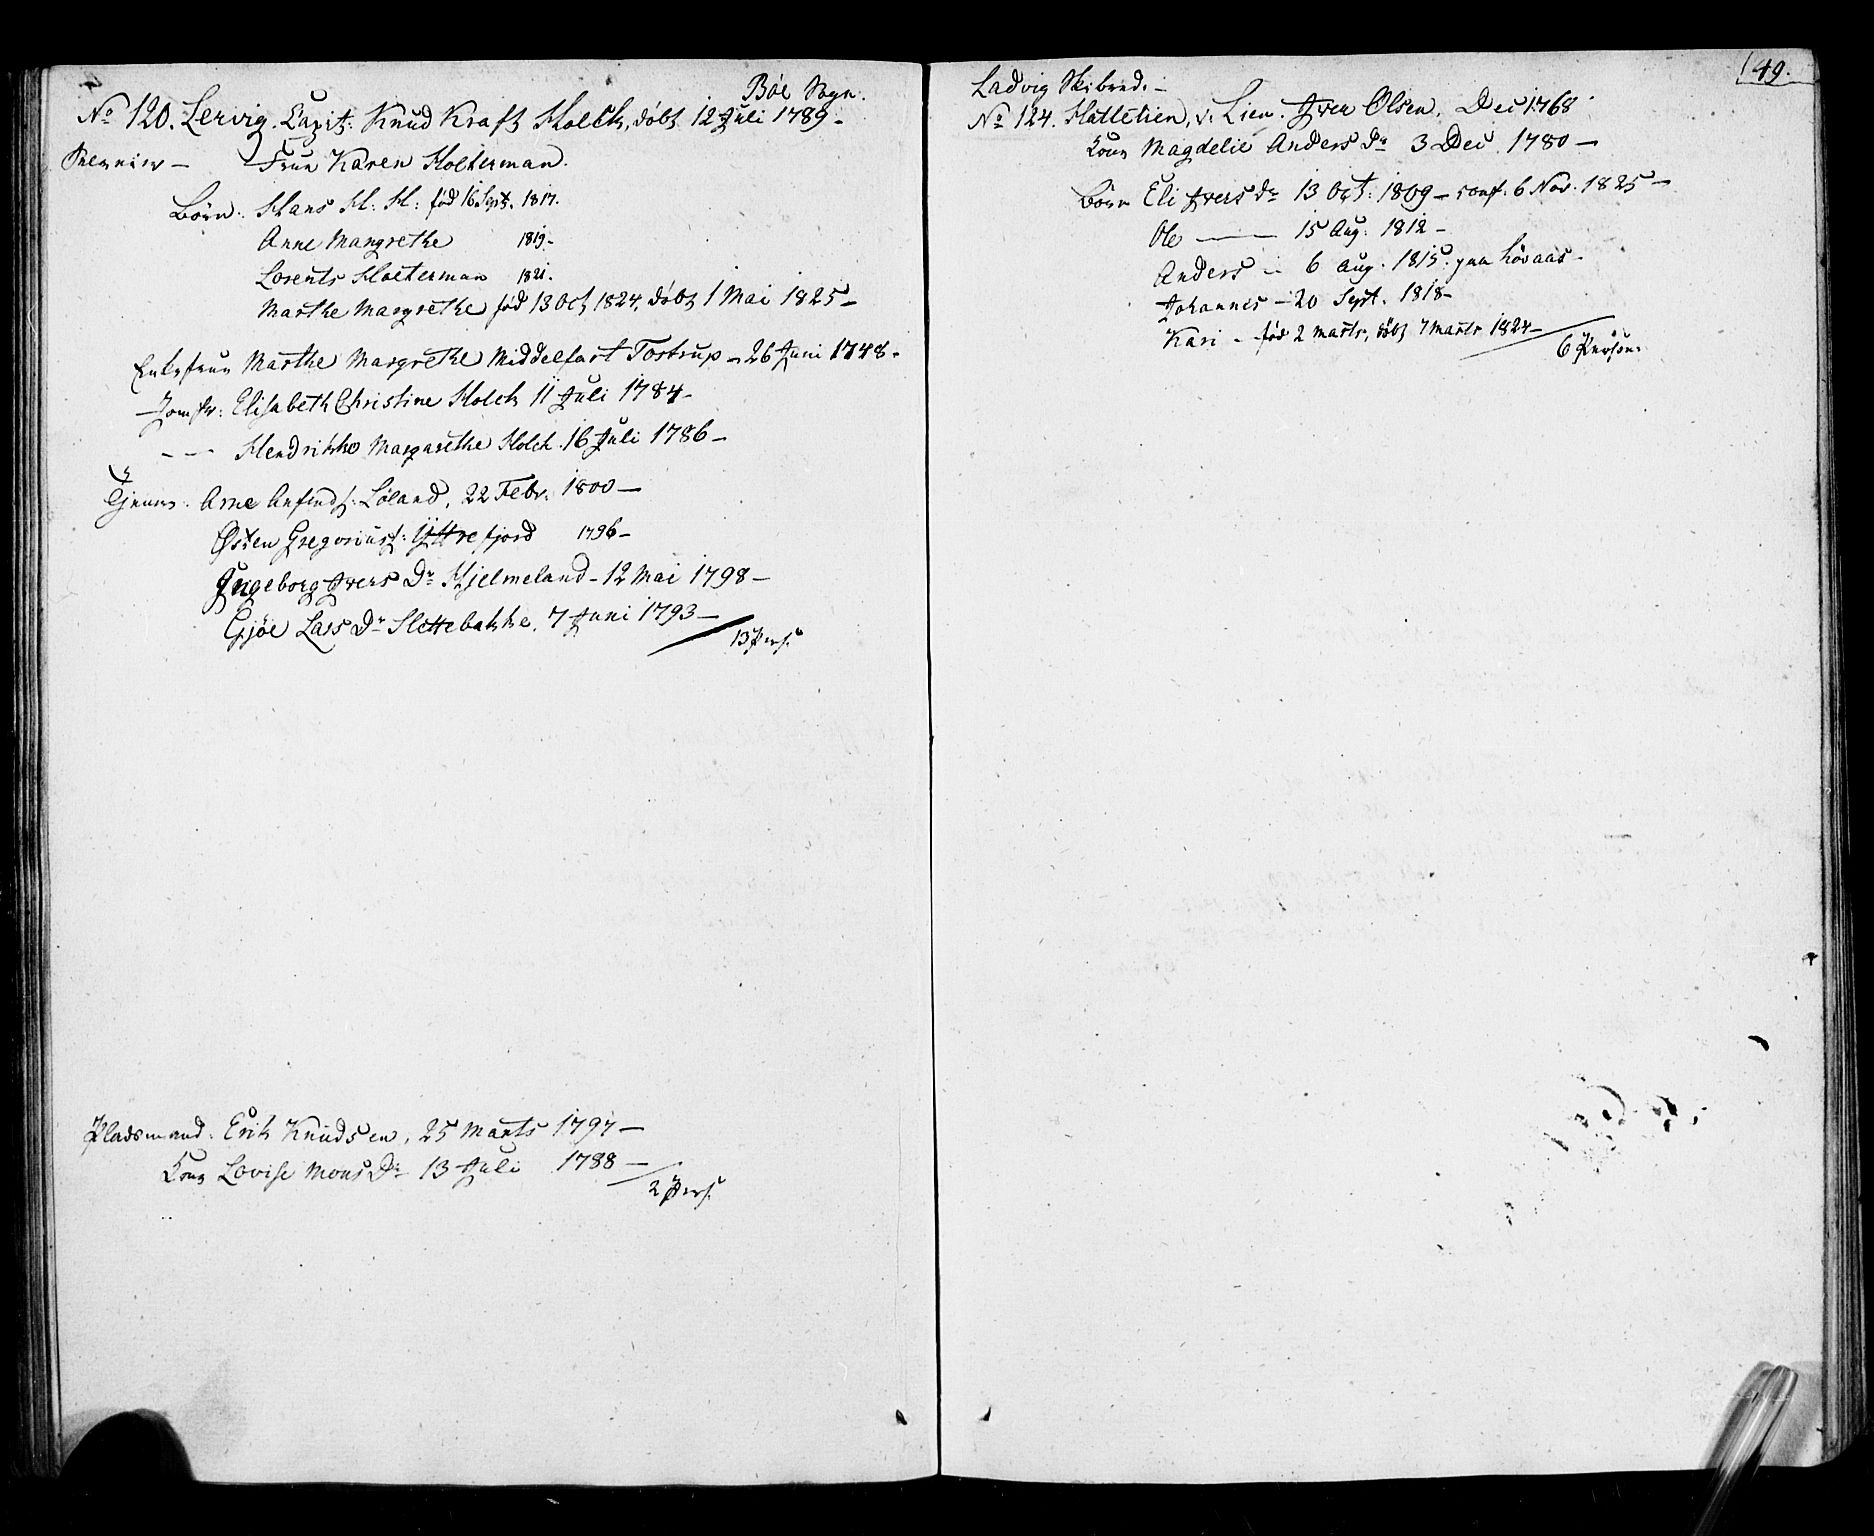 Bøe Sogn.
No 120. Lervig. Capit: Knud Kraft Holck, døbt 12 Juli 1789 -
Fruu Karen Holterman.
Børn: Hans H: H: fød 16 Sept. 1817.
Anne Margrethe 1819 -
Lorents Holterman 1821.
Marthe Margrethe fød 13 Oct 1824, døbt 1 Mai 1825 -
Enkefruu Marthe Margrethe Middelfart Tostrup - 26 Juni 1748 -
Jomfr: Elisabeth Christine Holck 11 Juli 1784 -
- - - Hendrikke Margarethe Holck. 16 Juli 1786 -
Tjenere. Arne Anfinds: Løland, 22 Febr: 1800 -
Østen Gregoriusf: Yttrefjord 1796 -
Ingeborg Ivers Dr Hjelmeland - 12 Mai 1798 -
Gjøe Lars Dr Slettebakke. 7 Juni 1793 -
13 Pers:
Pladsmand: Erik Knudsen, 25 Marts 1797 -
Kone Lovise Mons Dr 13 Juli 1788 -
2 Pers:
Ladvig Skibred. -
149.
No 124. Hatletien, v. Lien. Iver Olsen. Dec 1768
Kone Magdelie Anders Dr 3 Dec 1780 -
Børn Eli Ivers Dr 13 Oct: 1809 - conf. 6 Nov. 1825 -
Ole - 15 Aug: 1812 -
Anders - 6 Aug. 1815. paa Høvaas -
Johannes - 20 Sept. 1818 -
Kari - fød 2 Marts, døbt 7 Marts 1824 -
6 Person: